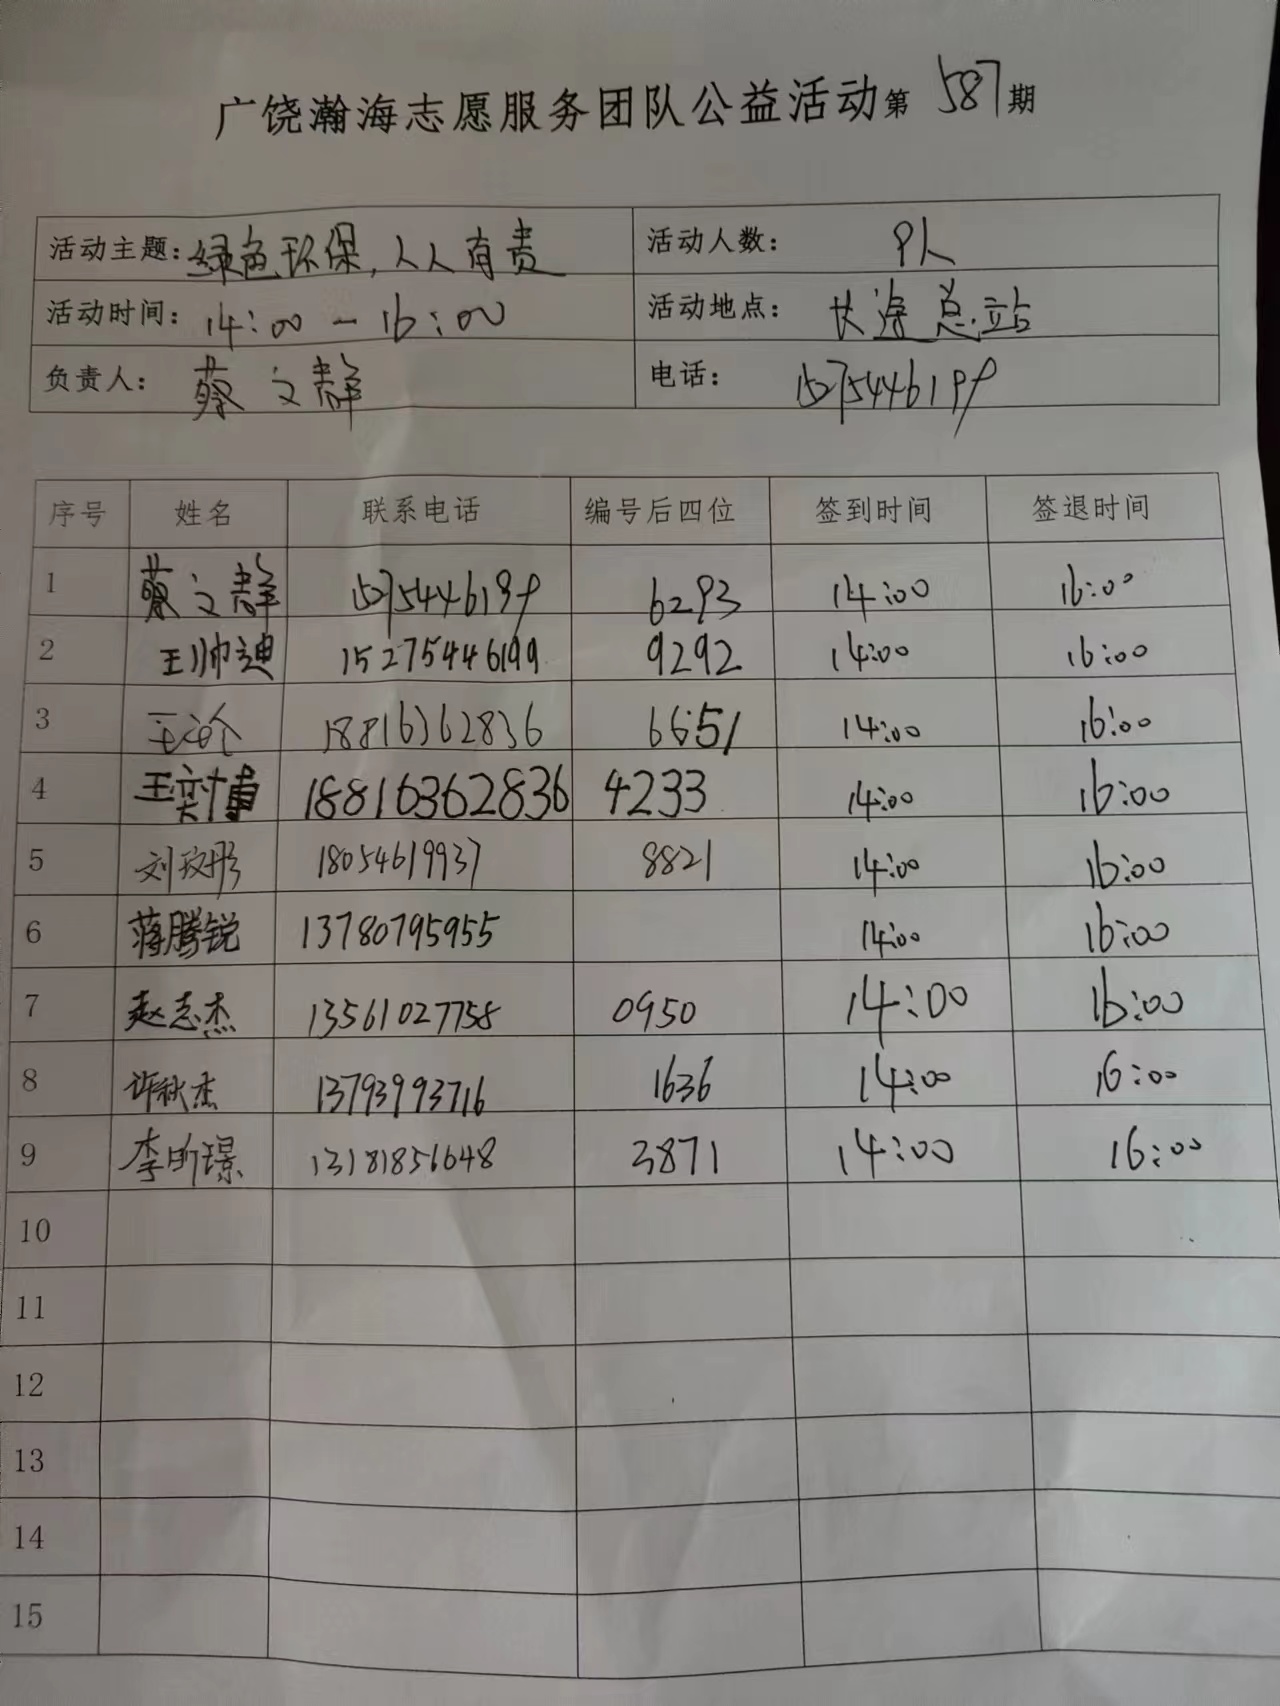 广饶瀚海志愿服务团队公益活动第587期
活动主题：绿色环保，人人有责 活动人数：9人
活动时间：14:00－16:00 活动地点：长途总站
负责人：蔡文静 电话：15275446199
序号 姓名 联系电话 编号后四位 签到时间 签退时间
1 蔡文静 15275446199 6293 14:00 16:00
2 王帅迪 15275446199 9292 14:00 16:00
3 18816362836 6651 14:00 16:00
4 王奕博 18816362836 4233 14:00 16:00
5 刘玟彤 18054619937 8821 14:00 16:00
6 蒋腾锐 13780795955 14:00 16:00
7 赵志杰 13561027758 0950 14:00 16:00
8 许秋杰 13793993716 1636 14:00 16:00
9 李昕璟 13181851648 3871 14:00 16:00
10
11
12
13
14
15